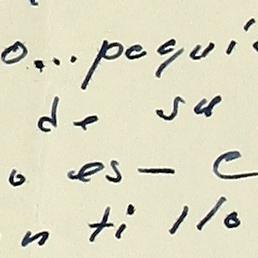 o... pequi
de su
o es- C
n ti